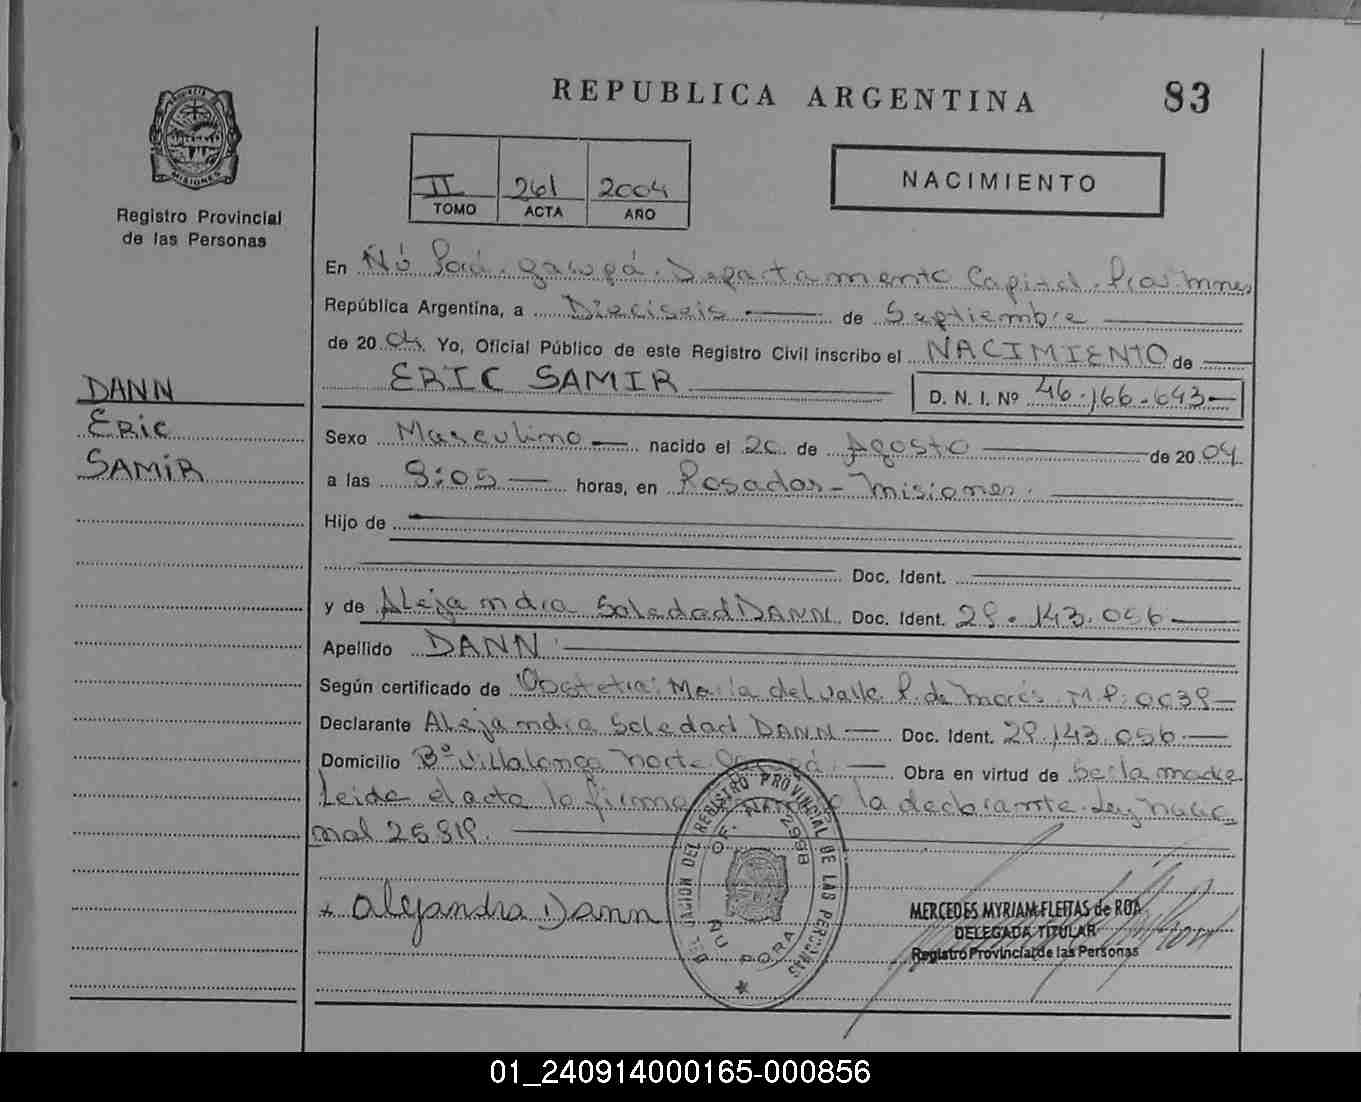 REPUBLICA ARGENTINA
83
MISIONES
Registro Provincial
de las Personas
II 261 2004
TOMO ACTA AÑO
NACIMIENTO
En Ñú Porá. Garupá. Departamento Capital. Mnes
República Argentina, a Dieciseis de Septiembre
de 2004. Yo, Oficial Público de este Registro Civil inscribo el NACIMIENTO de
ERIC SAMIR D. N. I. Nº 46.166.643
DANN
ERIC
SAMIR
Sexo Masculino nacido el 20 de Agosto de 2004
a las horas, en Posadas - Misiones.
Hijo de
Doc. Ident.
y de Alejandra Soledad DANN Doc. Ident. 29.143.056
Apellido DANN
Según certificado de Obstetra: María del Valle P. de M.P:
Declarante Alejandra Soledad DANN Doc. Ident. 29.143.056
Domicilio Bº Villalonga Norte Garupá. Obra en virtud de Ser la madre
Leida el acta la firma la declarante. Ley Nacio
nal
Alejandra Dann
DELEGACION DEL REGISTRO PROVINCIAL DE LAS PERSONAS
ÑU PORA
MERCEDES MYRIAM FLEITAS de ROA
DELEGADA TITULAR
Registro Provincial de las Personas
01_240914000165-000856